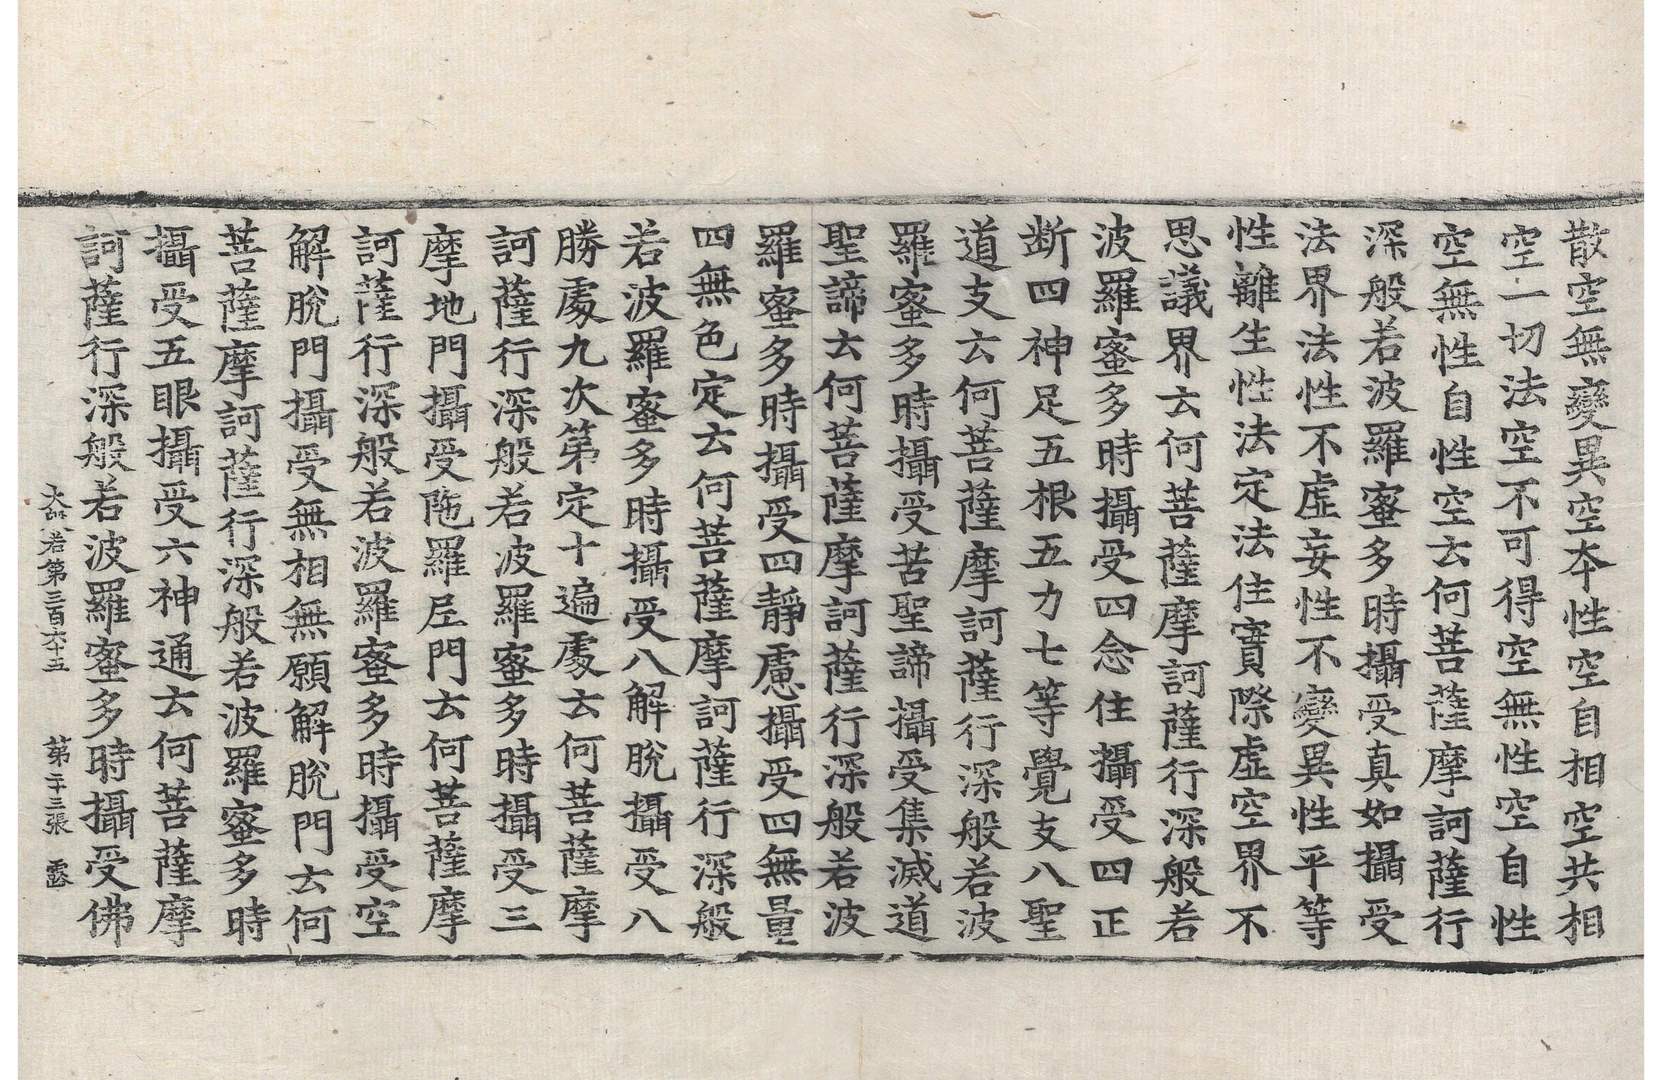 散空無變異空本性空自相空共相
空一切法空不可得空無性空自性
空無性自性空云何菩薩摩訶薩行
深般若波羅蜜多時攝受真如攝受
法界法性不虛妄性不變異性平等
性離生性法定法住實際虛空界不
思議界云何菩薩摩訶薩行深般若
波羅蜜多時攝受四念住攝受四正
斷四神足五根五力七等覺支八聖
道支云何菩薩摩訶薩行深般若波
羅蜜多時攝受苦聖諦攝受集滅道
聖諦云何菩薩摩訶薩行深般若波
羅蜜多時攝受四靜慮攝受四無量
四無色定云何菩薩摩訶薩行深般
若波羅蜜多時攝受八解脫攝受八
勝處九次第定十遍處云何菩薩摩
訶薩行深般若波羅蜜多時攝受三
摩地門攝受陁羅尼門云何菩薩摩
訶薩行深般若波羅蜜多時攝受空
解脫門攝受無相無願解脫門云何
菩薩摩訶薩行深般若波羅蜜多時
攝受五眼攝受六神通云何菩薩摩
訶薩行深般若波羅蜜多時攝受佛
大般若第三百六十五 第二十三張 露